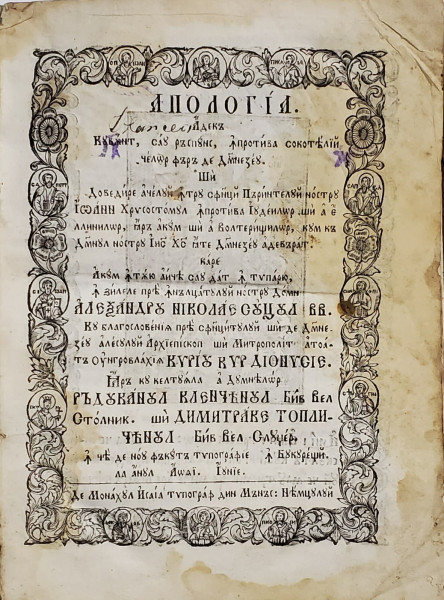 АПОЛОГІА.
Адекъ
Кꙋвѫнт, саꙋ рѫспꙋнс, ꙟпротива сокотѣлїй
челѡр фѫрѫ де Дꙋмнезеꙋ
Ши
Доведире ачелꙋй ꙟтрꙋ сфинцїй Пѫринтелꙋй нострꙋ
ІѠАНН Хрѵсостомꙋл ꙟпротива Іꙋдеилѡр. ши а є
линилѡр, ꙗрѫ акꙋм ши а Волтеришилѡр, кꙋм кѫ
Дмнꙋл нострꙋ Іис Хс ꙗсте Дмнезеꙋ адевѫрат.
каре
Акꙋм ꙟтѫю аиче саꙋ дат ꙟ типарю,
ꙟ зилеле прѣ ꙟнѫлцатꙋлꙋй нострꙋ Домн
АЛЕѮАНДРꙊ НІКОЛАЕ СꙊЦꙊЛ ВВ.
Кꙋ благословенїа прѣ сфинцитꙋлꙋй ши де Дмне-
зеꙋ алесꙋлꙋй Архїепископ ши Митрополит атоа-
тѫ Оунгровлахїа КѴРІꙊ КѴР ДІОНѴСІЕ.
Ꙗрѫ кꙋ келтꙋꙗла а Дꙋмнѣлѡр
РѪДꙊКАНꙊЛ КЛЕНЧѢНꙊЛ Бив Вел
Столник. ши ДИМИТРАКЕ ТОПЛИ-
ЧѢНꙊЛ Бив Вел Слꙋџер,
ꙟ чѣ де ноꙋ фѫкꙋтѫ типографїе ꙟ Бꙋкꙋрещй.
ла анꙋл Іꙋнїе.
Де Монахꙋл Исаїа типограф дин Мѫнѫс: Нѣмцꙋлꙋй